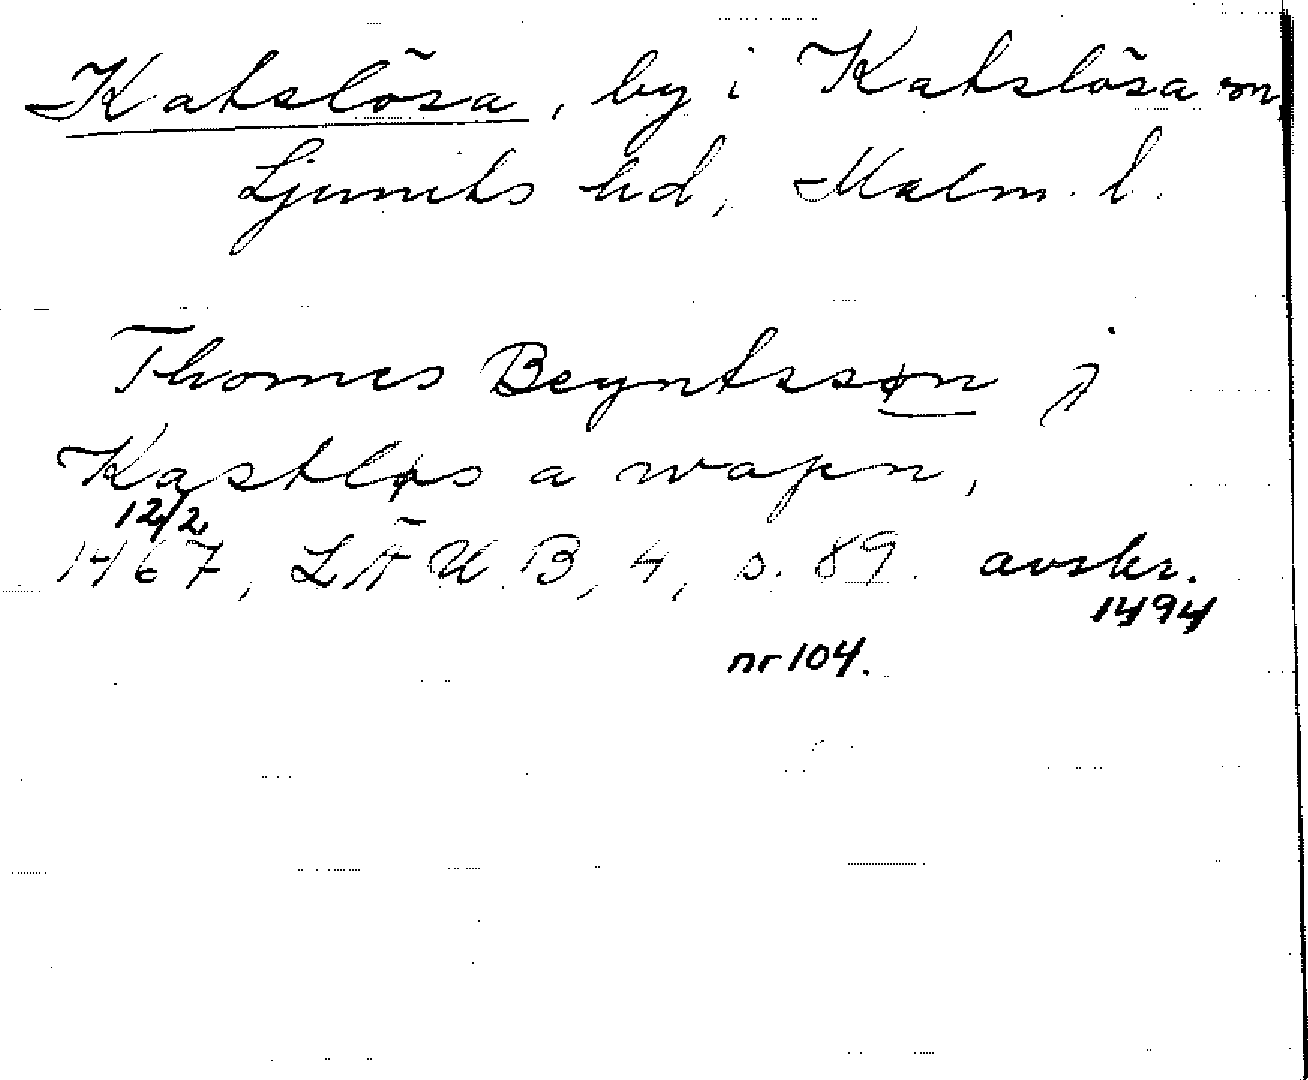 Katslösa, by i Katslösa sn,
Ljunits hd, Malm. l.
Thomes Beyntssøn j
Kastløs a wapn,
12/2
1467, LÄUB, 4, s. 89. avskr.
1494
nr 104.